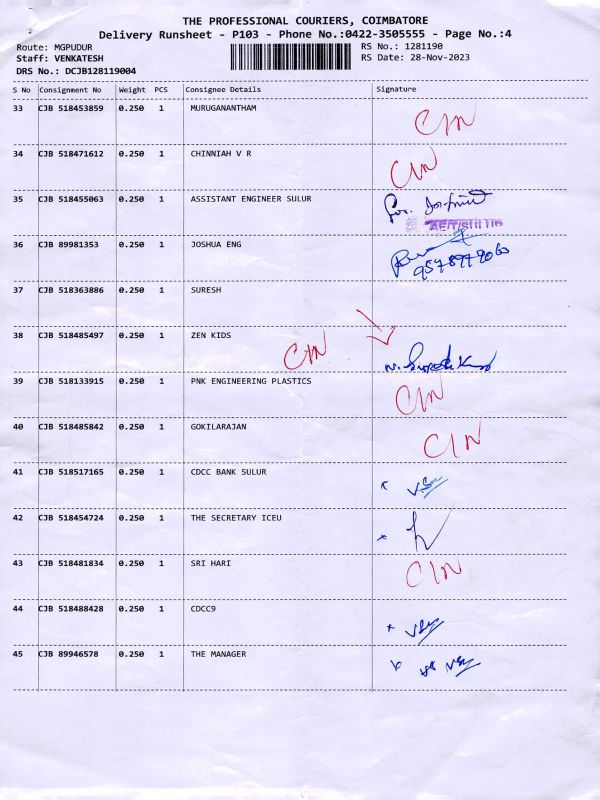 THE PROFESSIONAL COURIERS, COIMBATORE
Delivery Runsheet - P103 - Phone No.:0422-3505555 - Page No.:4
Route: MGPUDUR RS No.: 1281190
Staff: VENKATESH RS Date: 28-Nov-2023
DRS No.: DCJB128119004
S No Consignment No Weight PCS Consignee Details Signature
33 CJB 518453859 0.250 1 MURUGANANTHAM CIN
34 CJB 518471612 0.250 1 CHINNIAH V R CIN
35 CJB 518455063 0.250 1 ASSISTANT ENGINEER SULUR for.
36 CJB 89981353 0.250 1 JOSHUA ENG
37 CJB 518363886 0.250 1 SURESH
38 CJB 518485497 0.250 1 ZEN KIDS CIN
39 CJB 518133915 0.250 1 PNK ENGINEERING PLASTICS CIN
40 CJB 518485842 0.250 1 GOKILARAJAN CIN
41 CJB 518517165 0.250 1 CDCC BANK SULUR
42 CJB 518454724 0.250 1 THE SECRETARY ICEU
43 CJB 518481834 0.250 1 SRI HARI CIN
44 CJB 518488428 0.250 1 CDCC9
45 CJB 89946578 0.250 1 THE MANAGER